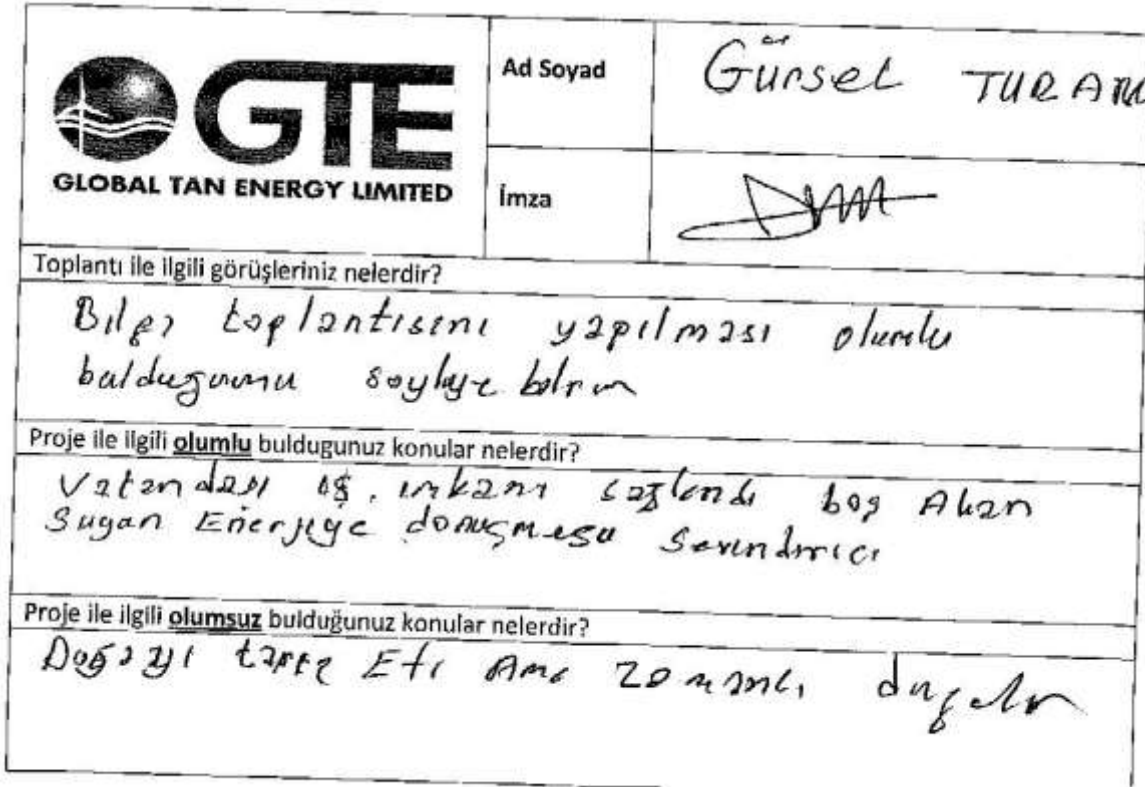 GTE
GLOBAL TAN ENERGY LIMITED
Ad Soyad
Gürsel TURAN
İmza
Toplantı ile ilgili görüşleriniz nelerdir?
Bilgi toplantısını yapılması olumlu
bulduğumu söyleye bilirim
Proje ile ilgili olumlu buldugunuz konular nelerdir?
Vatandaşı iş imkanı sağlandı boş Akan
Suyan Enerjiye donuşmesu Sevindirici
Proje ile ilgili olumsuz bulduğunuz konular nelerdir?
Doğayı Eti Ama zamanlı